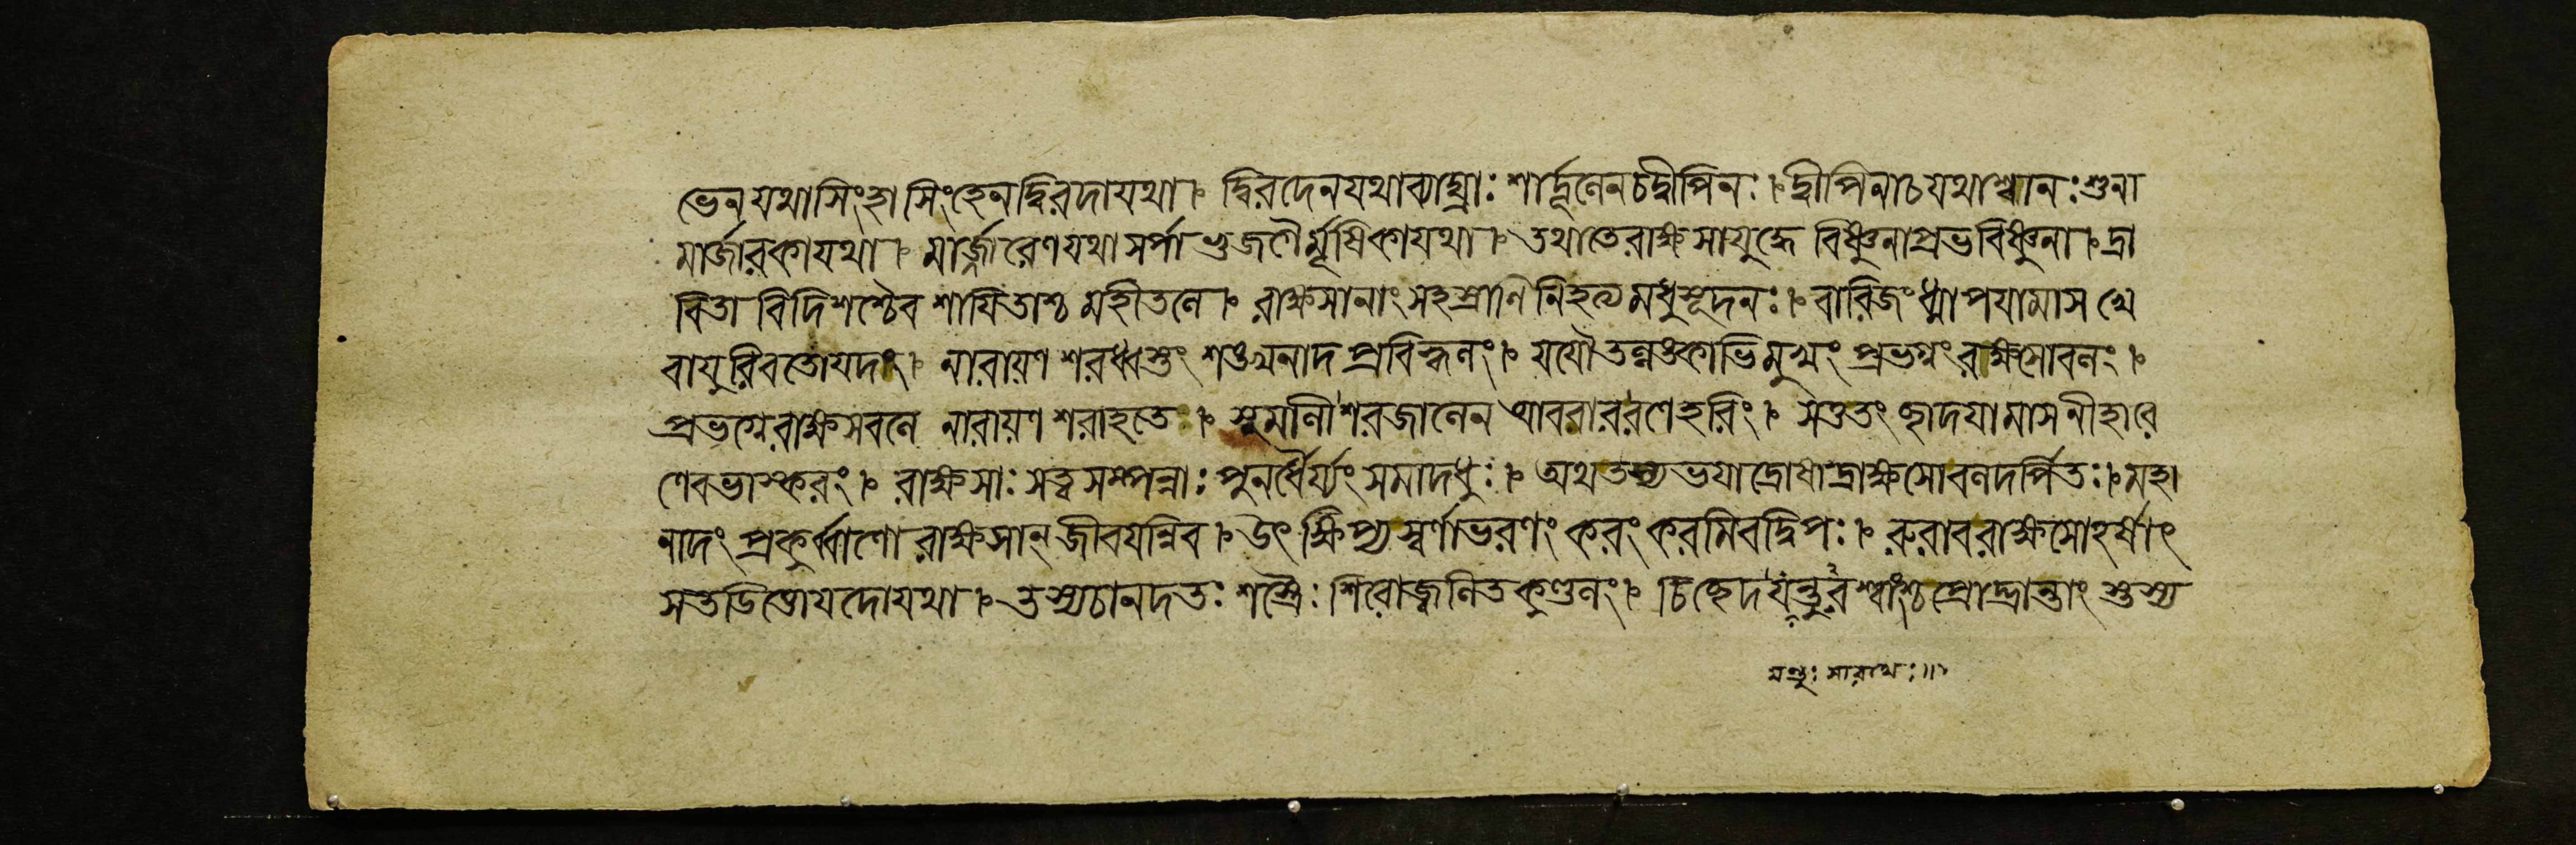 ভেন যথাসিংহা সিংহেনদ্বিরদাযথা। দ্বিরদেনযথাব্যাঘ্রাঃ শার্দ্দূলেনচদ্বীপিনঃ। দ্বীপিনাচযথাশ্বানঃ শুনা
মার্জারকাযথা। মার্জ্জারেণযথাসর্পা ভুজগৈর্মূষিকাযথা। তথাতেরাক্ষসাযুদ্ধে বিষ্ণুনাপ্রভবিষ্ণুনা। দ্রা
বিতা বিদিশশ্চৈব শাযিতাশ্চ মহীতলে। রাক্ষসানাং সহস্রাণি নিহত্য মধুসূদনঃ। বারিজং ধ্মাপযামাস খে
বাযুরিবতোযদাং। নারাযণ শরধ্বস্তং শঙ্খনাদ প্রবিহ্বলং। যযৌ তল্লঙ্কাভিমুখং প্রভগ্নং রাক্ষসোবলং।
প্রভগ্নেরাক্ষসবলে নারাযণ শরাহতে। সুমালী শরজালেন আববাররণেহরিং। সতুতং ছাদযামাস নীহারে
ণেবভাস্করং। রাক্ষসাঃ সত্ত্বসম্পন্নাঃ পুনর্ধৈর্য্যং সমাদধুঃ। অথ তস্য ভযাদ্রোষাদ্রাক্ষসোবলদর্পিতঃ। মহা
নাদং প্রকুর্ব্বাণো রাক্ষসান্ জীবযন্নিব। উৎক্ষিপ্য স্বর্ণাভরণং করং করমিবদ্বিপঃ। ররাবরাক্ষসোহর্ষাৎ
সতডিত্তোযদোযথা। তস্যচানদতঃ শস্ত্রৈঃ শিরোজ্বলিতকুণ্ডলং। চিচ্ছেদযন্তুরশ্বাংশ্চ প্রোদ্ভ্রান্তাং স্তস্য
যন্তুঃ সারথেঃ॥